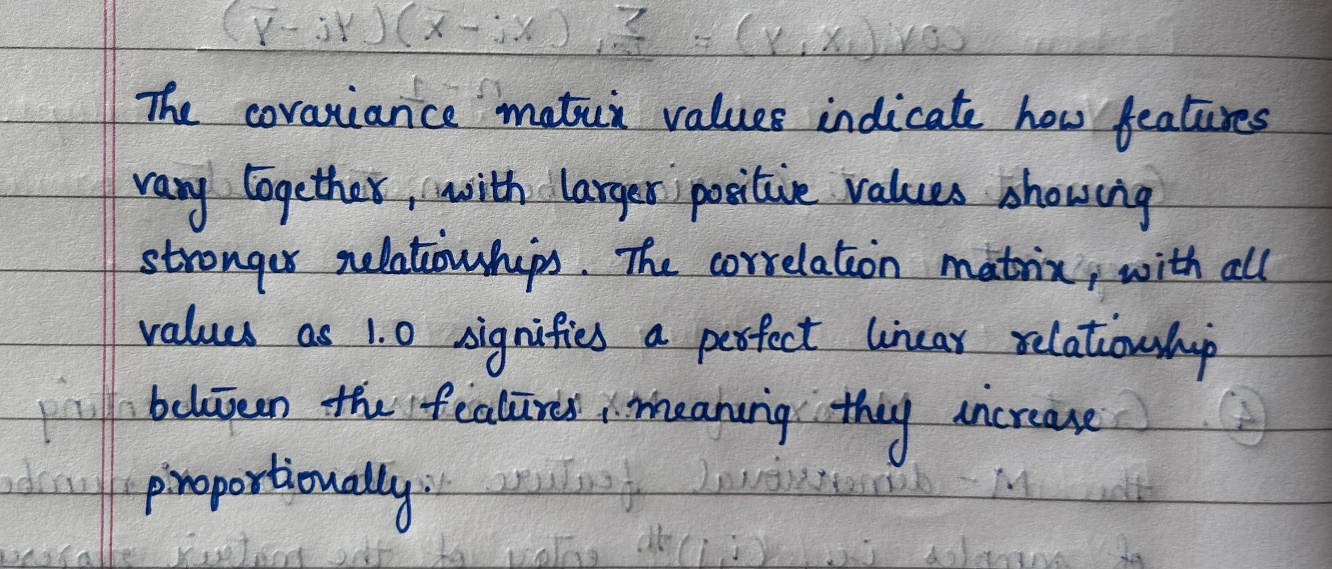 The covariance matrix values indicate how features
vary together, with larger positive values showing
stronger relationships. The correlation matrix, with all
values as 1.0 signifies a perfect linear relationship
between the features, meaning they increase
proportionally.